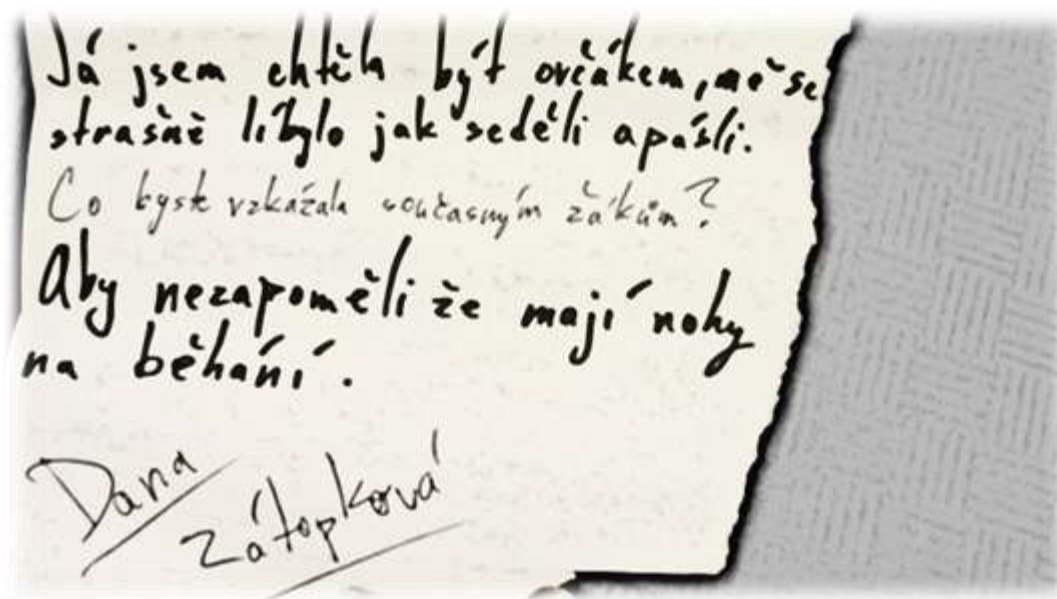 Já jsem chtěla být ovčákem, mě se
strašně líbylo jak seděli a pásli.
Co byste vzkázala současným žákům?
Aby nezapoměli že mají nohy
na běhání.
Dana
Zátopková